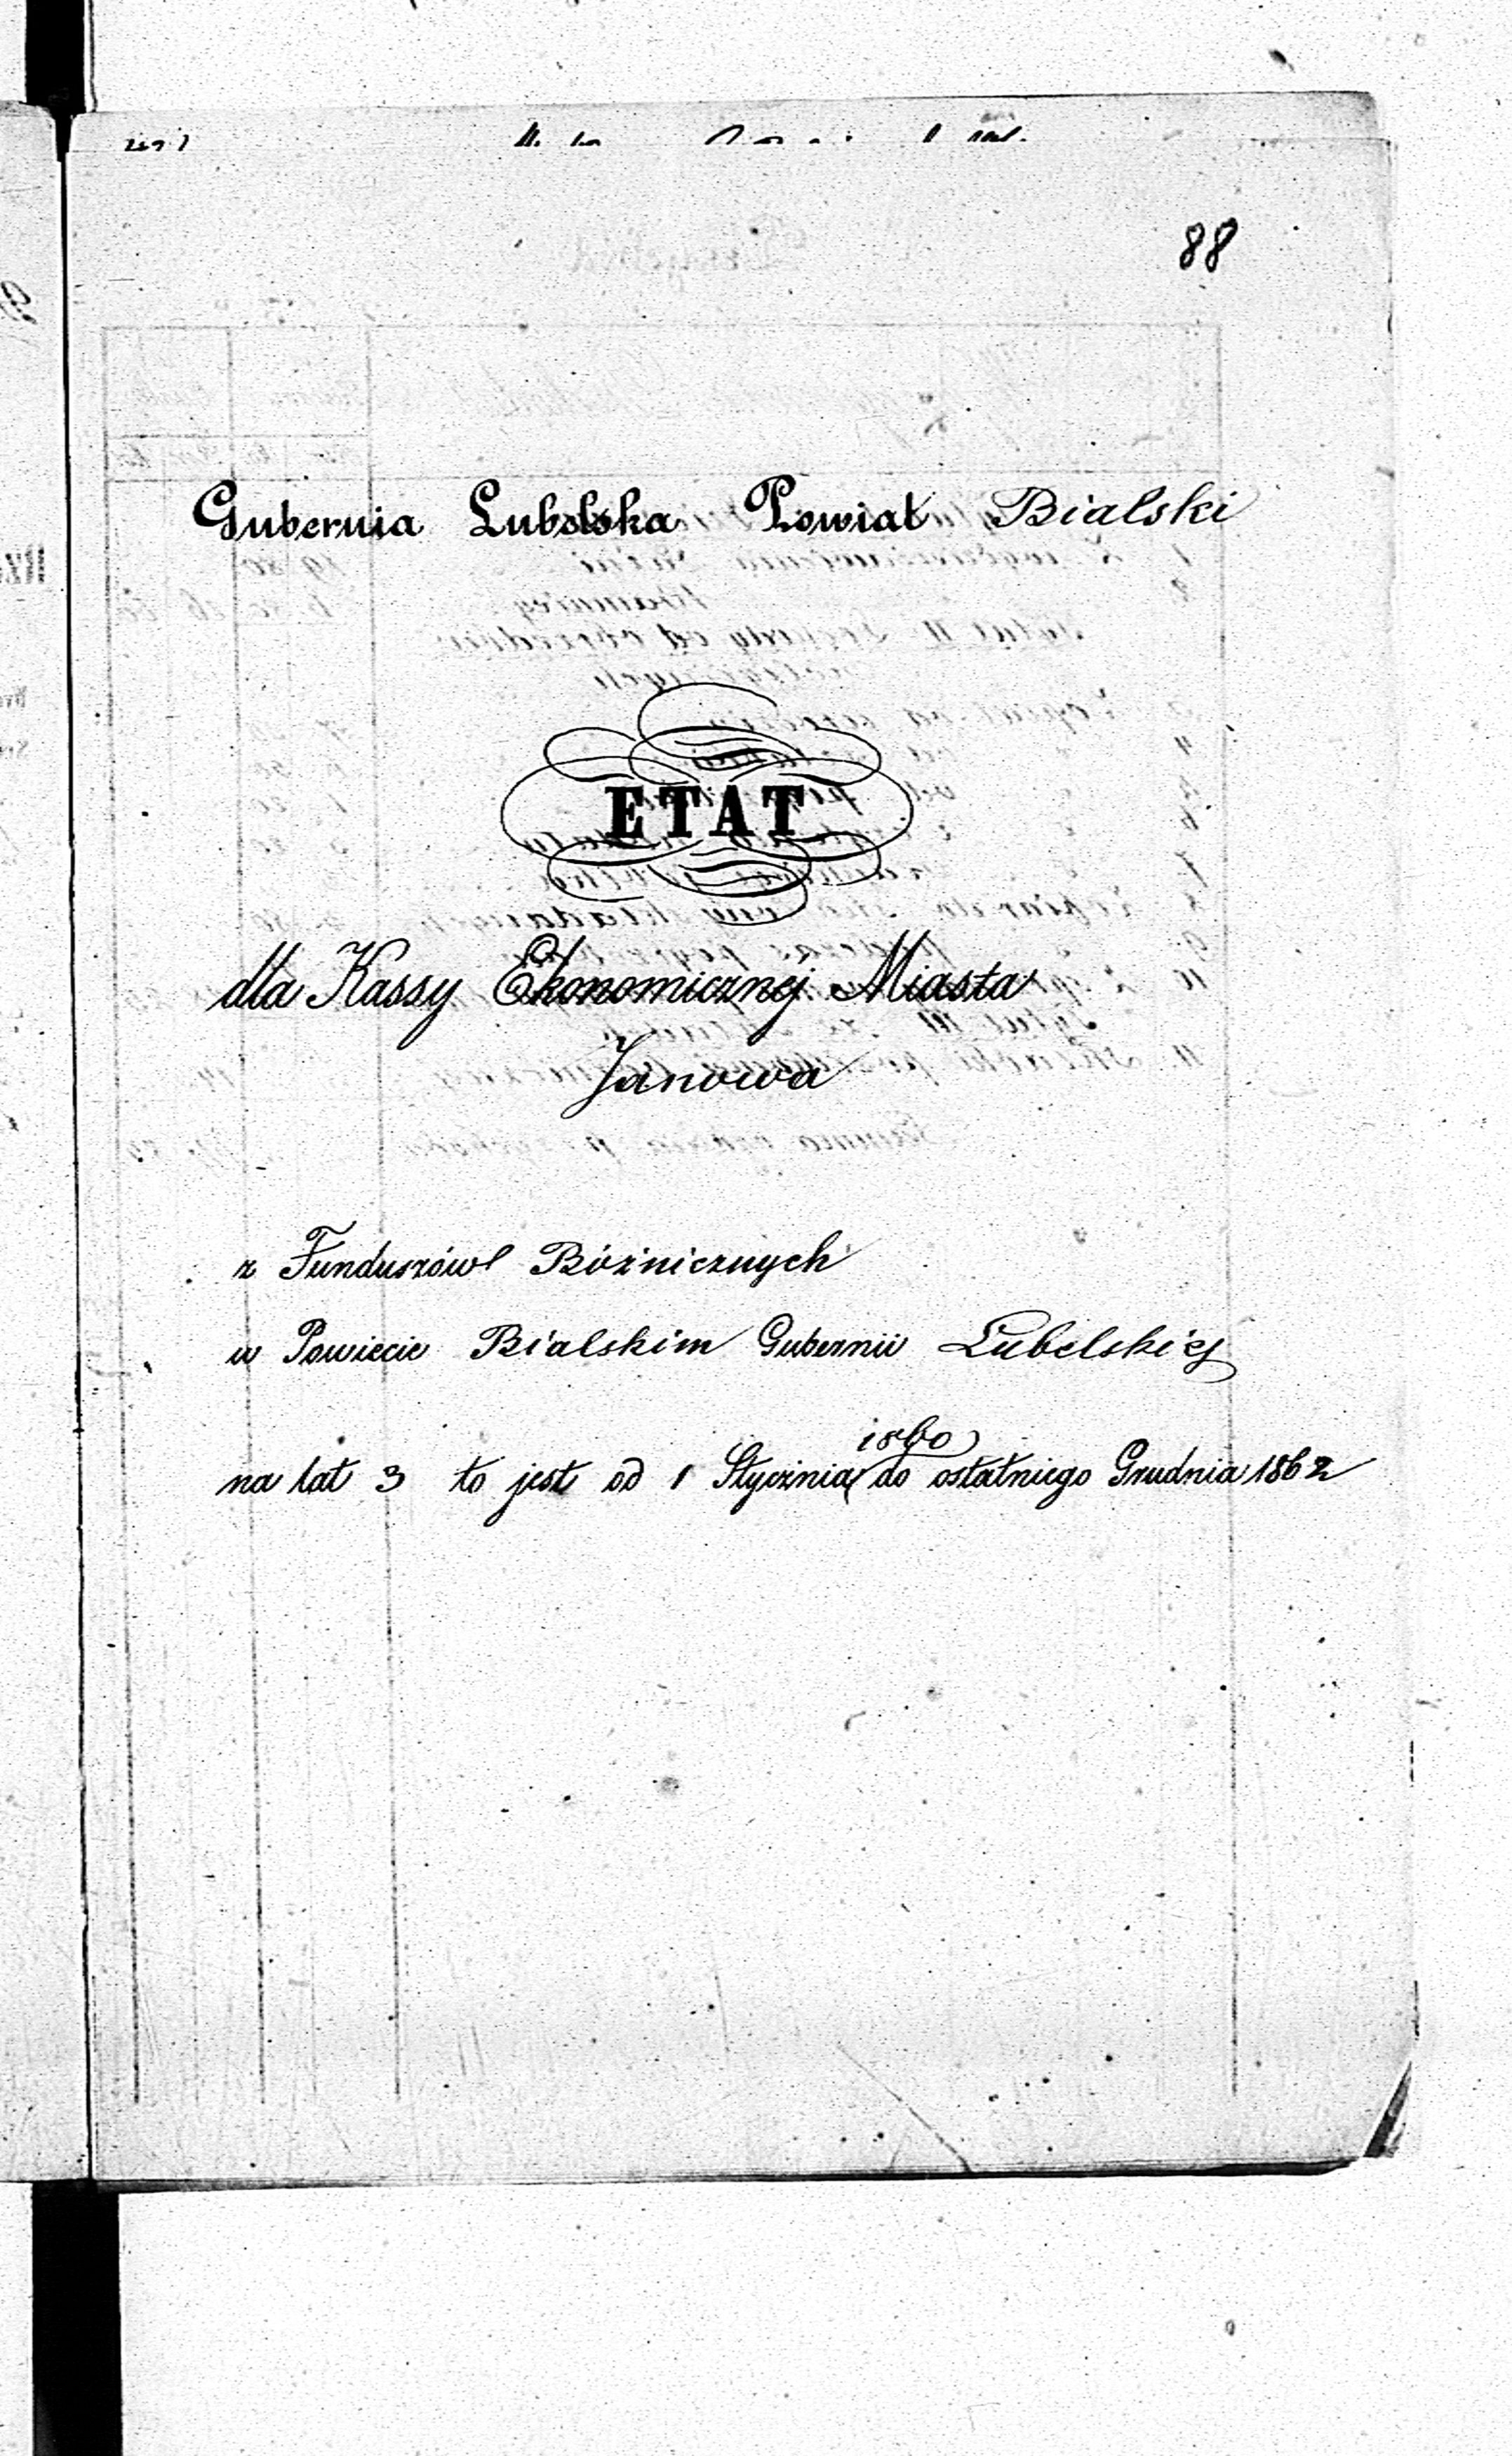 88
Gubernia Lubelska Powiat Bialski
ETAT
dla Kassy Ekonomicznej Miasta
Janowa
z Funduszów Bóżnicznych
w Powiecie Bialskim Gubernii Lubelskiej
1860
na lat 3 to jest od 1 Stycznia do ostatniego Grudnia 1862